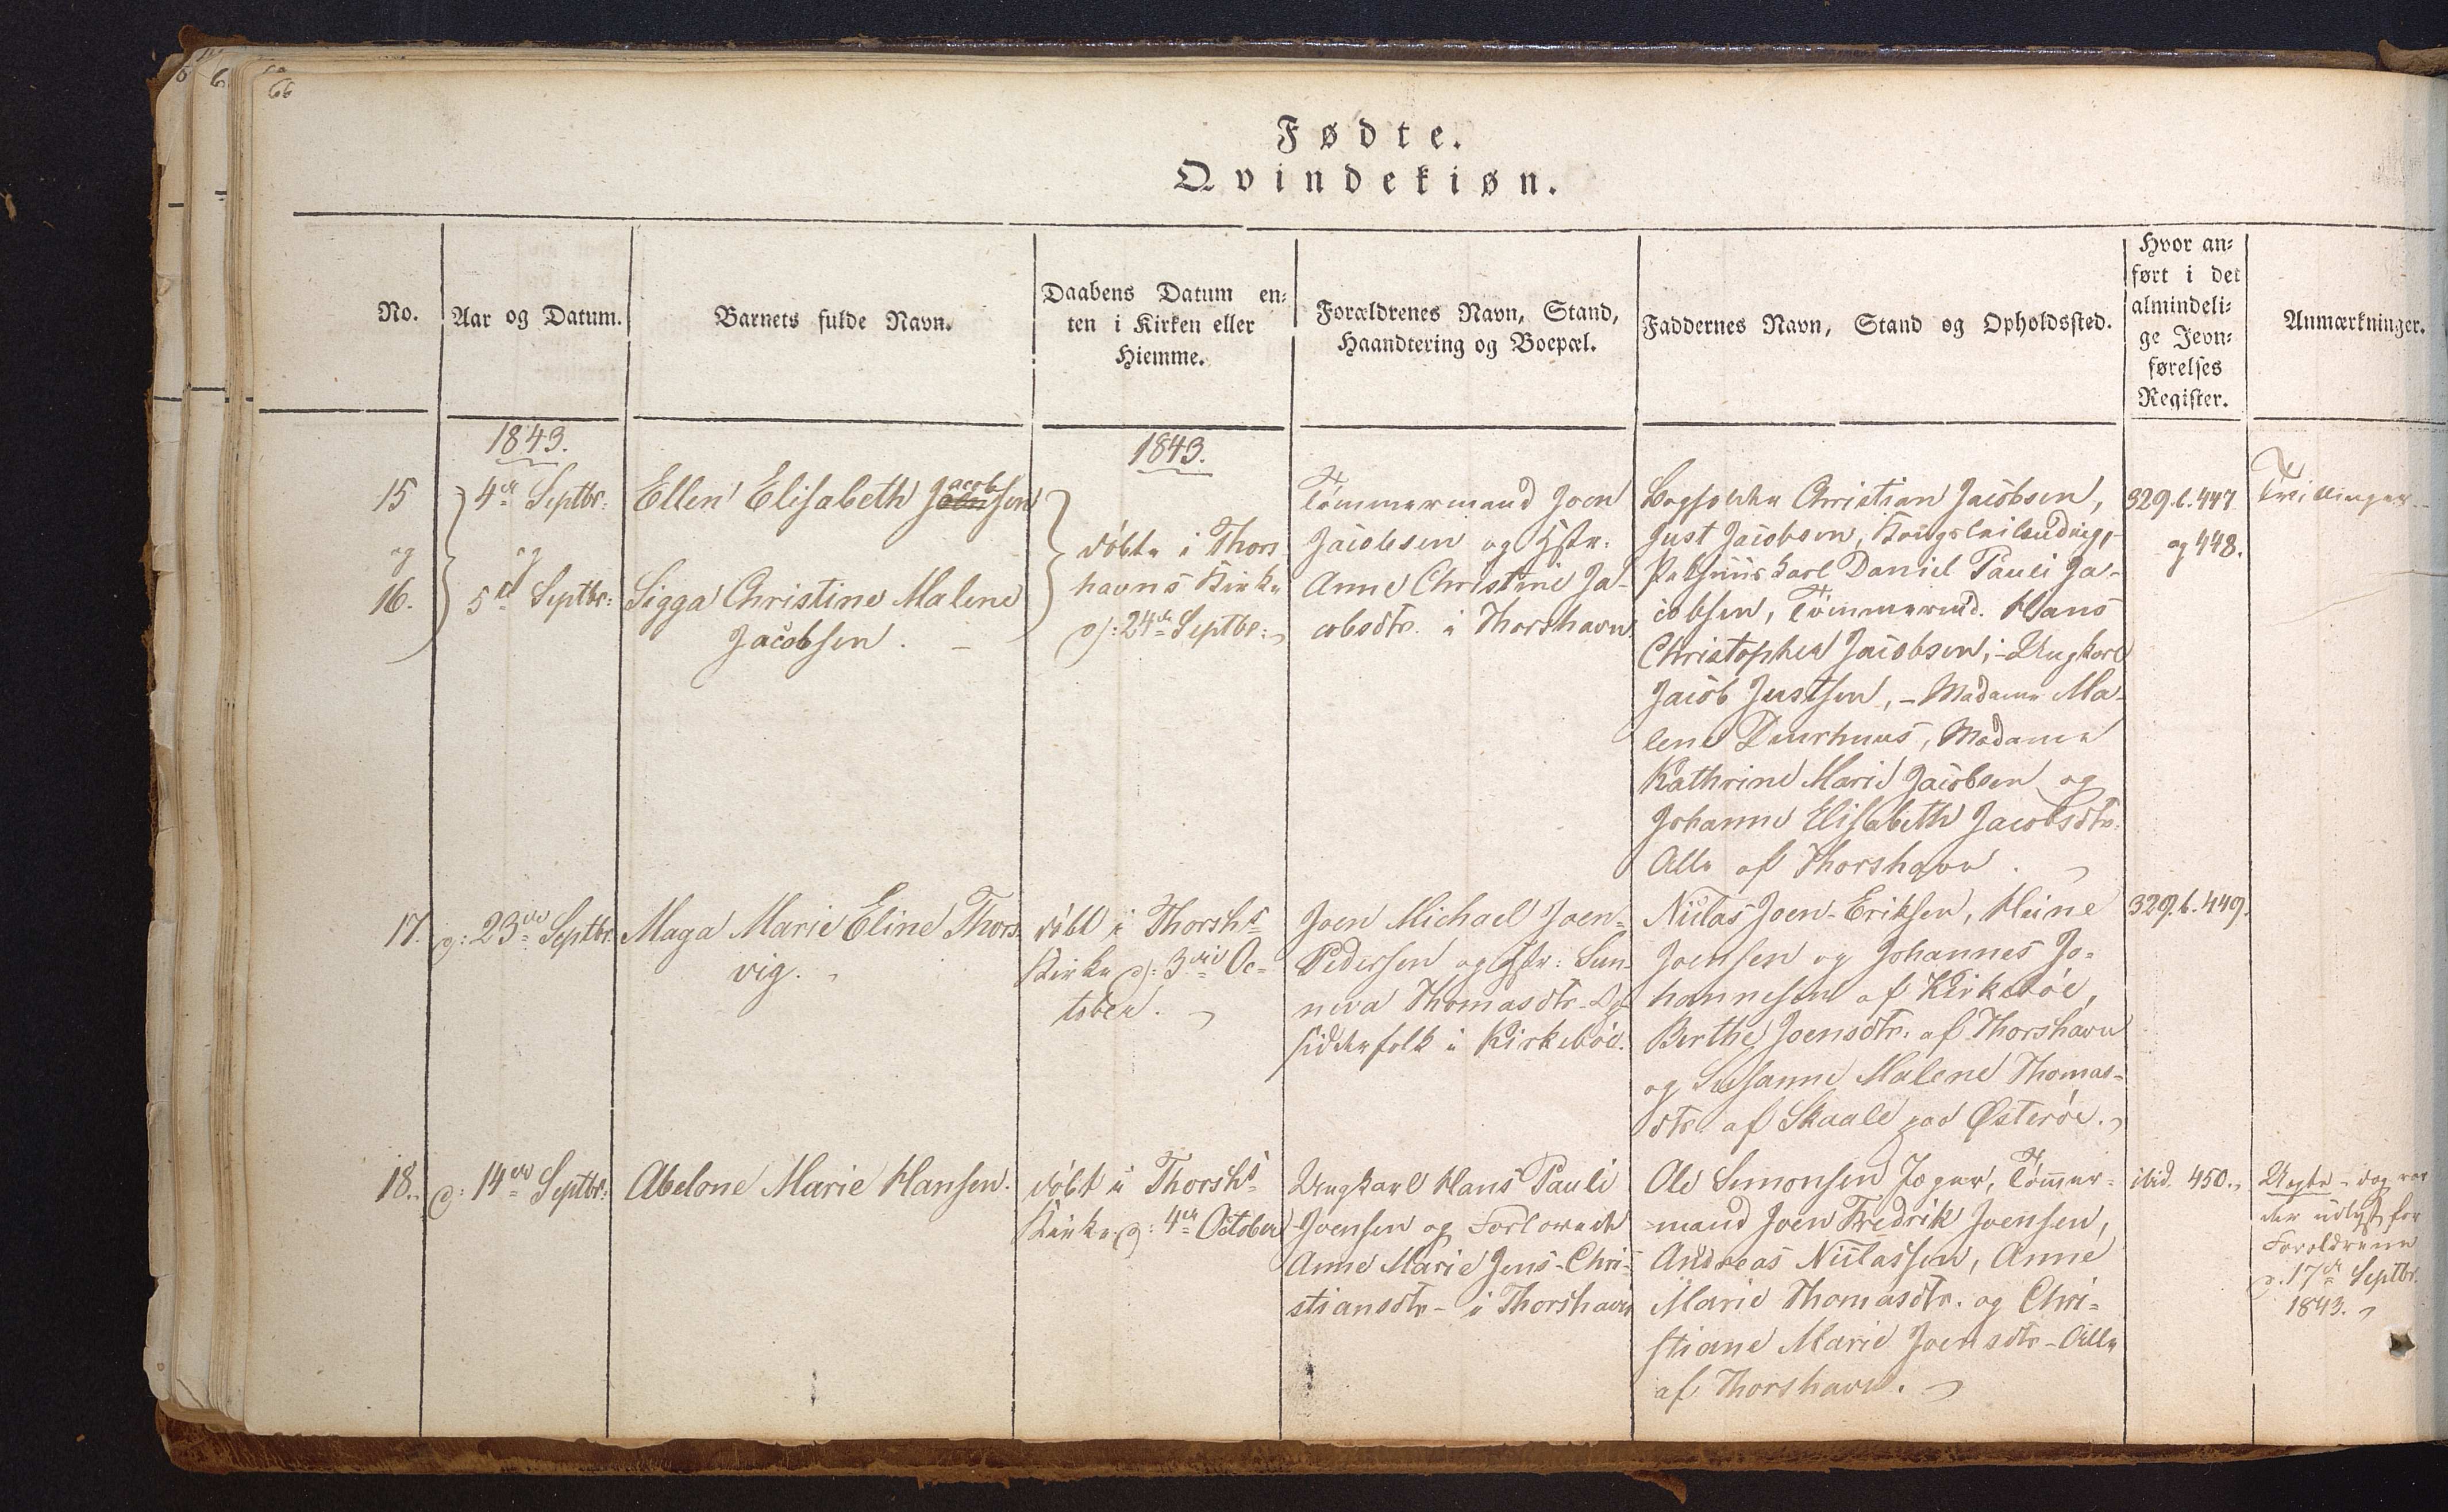 66
Fødte.
Qvindekiøn.
No.
Aar og Datum.
Barnets fulde Navn.
Daabens Datum en-
ten i Kirken eller
Hiemme.
Forældrenes Navn, Stand,
Haandtering og Boepæl.
Faddernes Navn, Stand og Opholdssted.
Hvor an-
ført i det
almindeli-
ge Jevn-
førelses
Register.
Anmærkninger.
1843.
1843.
15
og
16.
4de Septbr:
og
5te Septbr:
Ellen Elisabeth Jacobsen
Sigga Christine Malene
Jacobsen.
døbte i Thors
havns Kirke
d: 24de Septbr:
Tømmermand Joen
Jacobsen og Hstr.
Anne Christine Ja-
cobsdtr. i Thorshavn
Christian Jacobsen,
Just Jacobsen,
Daniel Pauli Ja-
cobsen, Tømmermd. Hans
Christopher Jacobsen, - Ungkarl
Jacob Justsen, - Madame Ma-
lene Duurhuus, Madame
Kathrine Marie Jacobsen og
Johanne Elisabeth Jacobsdtr.
Alle af Thorshavn.
329.b.447
og 448.
Tvillinger
17.
d: 23de Septbr.
Maga Marie Eline Thors
vig.
døbt i Thorshs
Kirke d: 3die Oc-
tober.
Joen Michael Joen-
Pedersen og Hstr: Sun-
neva Thomasdtr.
sidderfolk i Kirkebøe.
Niclas Joen-Eriksen, Heine
Joensen og Johannes Jo-
hannesen af Kirkebøe,
Berthe Joensdtr. af Thorshavn
og Susanne Malene Thomas-
dtr. af Skaale paa Østerøe.
329.b.449.
18.
d: 14de Septbr:
Abelone Marie Hansen.
døbt i Thorshs
Kirke d: 4de October
Ungkarl Hans Pauli
Joensen og Forlovede
Anne Marie Jens-Chri-
stiansdtr - i Thorshavn
Ole Simonsen Tømmer-
mand Joen Fredrik Joensen,
Andreas Niclassen, Anne
Marie Thomasdtr. og Chri-
stiane Marie Joensdtr - Alle
af Thorshavn.
ibid. 450.
Uægte - dog var
der udlyst for
Forældrene
d. 17de Septbr.
1843.